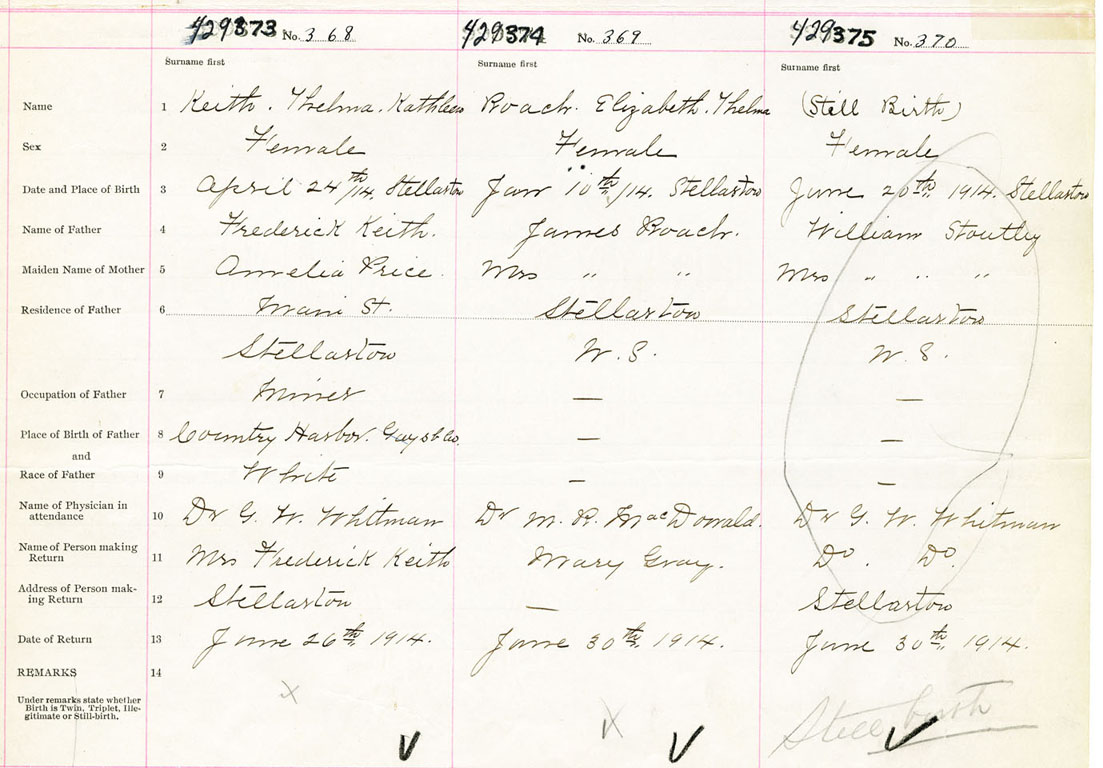 429373 No. 368 429374 No. 369 429375 No. 370
Surname first Surname first Surname first
Name 1 Keith. Thelma. Kathleen Roach. Elizabeth. Thelma (Still Birth)
Sex 2 Female Female Female
Date and Place of Birth 3 April 24th/14. Stellarton Jan 10th/14. Stellarton June 20th 1914. Stellarton
Name of Father 4 Frederick Keith. James Roach. William Stoutley
Maiden Name of Mother 5 Amelia Price. Mrs " " Mrs " " "
Residence of Father 6 Main St. Stellarton Stellarton
Stellarton W. S. W. S.
Occupation of Father 7 Miner — —
Place of Birth of Father 8 Country Harbor. Guysb Co. — —
and
Race of Father 9 White — —
Name of Physician in
attendance 10 Dr G. W. Whitman Dr M. R. MacDonald. Dr G. W. Whitman
Name of Person making
Return 11 Mrs Frederick Keith Mary Gray. Do. Do.
Address of Person mak-
ing Return 12 Stellarton — Stellarton
Date of Return 13 June 26th 1914. June 30th 1914. June 30th 1914.
REMARKS 14
Under remarks state whether
Birth is Twin, Triplet, Ille-
gitimate or Still-birth.
Still birth